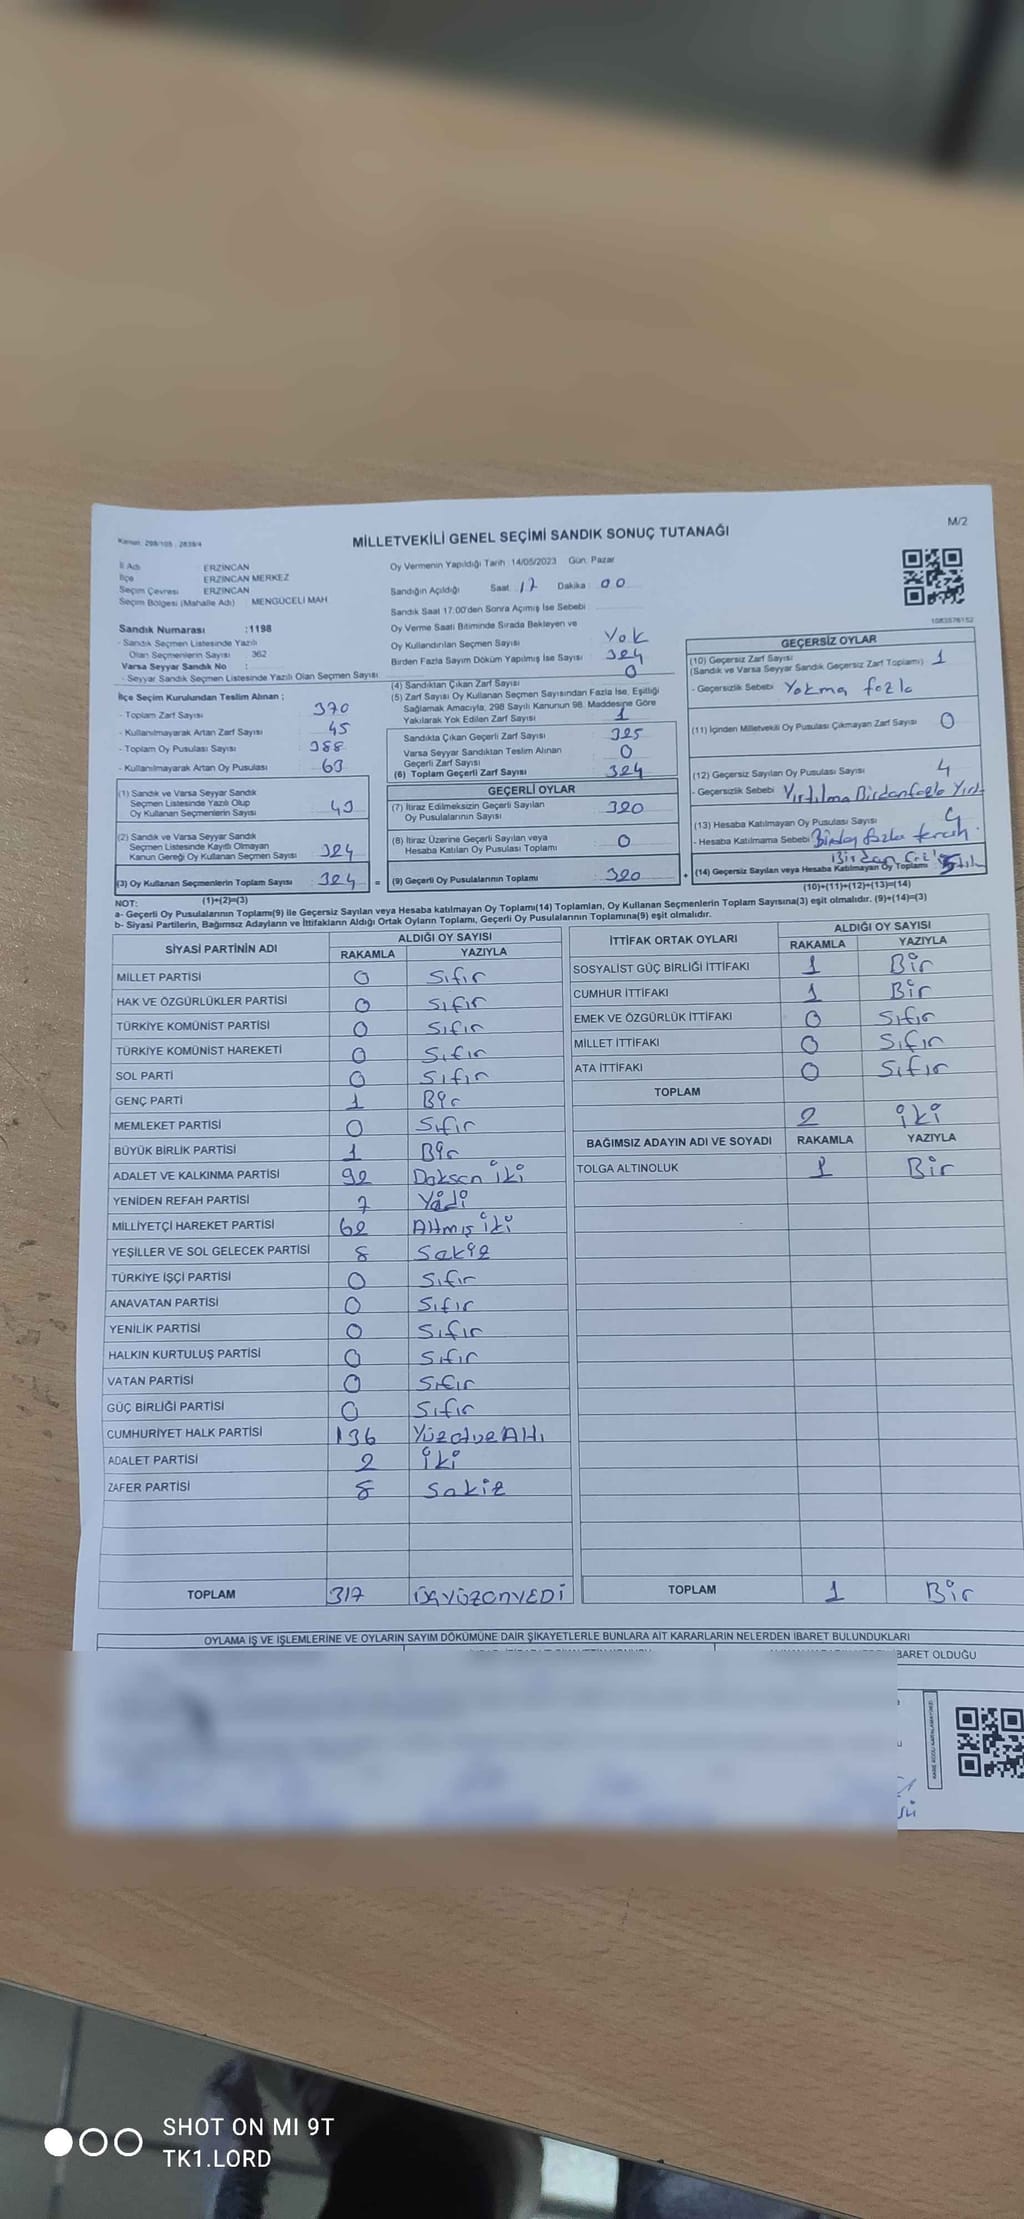 M/2
Kanun: 298/105 , 2839/4
MİLLETVEKİLİ GENEL SEÇİMİ SANDIK SONUÇ TUTANAĞI
İl Adı : ERZİNCAN
İlçe : ERZİNCAN MERKEZ
Seçim Çevresi : ERZİNCAN
Seçim Bölgesi (Mahalle Adı) : MENGÜCELİ MAH
Sandık Numarası :1198
- Sandık Seçmen Listesinde Yazılı
Olan Seçmenlerin Sayısı : 362
Varsa Seyyar Sandık No :
- Seyyar Sandık Seçmen Listesinde Yazılı Olan Seçmen Sayısı :
İlçe Seçim Kurulundan Teslim Alınan ;
- Toplam Zarf Sayısı : 370
- Kullanılmayarak Artan Zarf Sayısı : 45
- Toplam Oy Pusulası Sayısı : 388
- Kullanılmayarak Artan Oy Pusulası : 63
(1) Sandık ve Varsa Seyyar Sandık
Seçmen Listesinde Yazılı Olup
Oy Kullanan Seçmenlerin Sayısı : 49
(2) Sandık ve Varsa Seyyar Sandık
Seçmen Listesinde Kayıtlı Olmayan
Kanun Gereği Oy Kullanan Seçmen Sayısı : 324
(3) Oy Kullanan Seçmenlerin Toplam Sayısı : 324 =
(1)+(2)=(3)
Oy Vermenin Yapıldığı Tarih :14/05/2023 Gün: Pazar
Sandığın Açıldığı Saat : 17 Dakika : 00
Sandık Saat 17.00'den Sonra Açımış İse Sebebi :
Oy Verme Saati Bitiminde Sırada Bekleyen ve
Oy Kullandırılan Seçmen Sayısı : Yok
Birden Fazla Sayım Döküm Yapılmış İse Sayısı : 324
(4) Sandıktan Çıkan Zarf Sayısı : 0
(5) Zarf Sayısı Oy Kullanan Seçmen Sayısından Fazla İse, Eşitliği
Sağlamak Amacıyla, 298 Sayılı Kanunun 98. Maddesine Göre
Yakılarak Yok Edilen Zarf Sayısı : 1
Sandıkta Çıkan Geçerli Zarf Sayısı : 325
Varsa Seyyar Sandıktan Teslim Alınan
Geçerli Zarf Sayısı : 0
(6) Toplam Geçerli Zarf Sayısı : 324
GEÇERLİ OYLAR
(7) İtiraz Edilmeksizin Geçerli Sayılan
Oy Pusulalarının Sayısı : 320
(8) İtiraz Üzerine Geçerli Sayılan veya
Hesaba Katılan Oy Pusulası Toplamı : 0
(9) Geçerli Oy Pusulalarının Toplamı : 320 +
1083576152
GEÇERSİZ OYLAR
(10) Geçersiz Zarf Sayısı
(Sandık ve Varsa Seyyar Sandık Geçersiz Zarf Toplamı) : 1
- Geçersizlik Sebebi : Yakma fazla
(11) İçinden Milletvekili Oy Pusulası Çıkmayan Zarf Sayısı : 0
(12) Geçersiz Sayılan Oy Pusulası Sayısı : 4
- Geçersizlik Sebebi : Yırtılma Birdenfazla
(13) Hesaba Katılmayan Oy Pusulası Sayısı :
- Hesaba Katılmama Sebebi : Birden fazla tercih
Birden
(14) Geçersiz Sayılan veya Hesaba Katılmayan Oy Toplamı :
(10)+(11)+(12)+(13)=(14)
NOT:
a- Geçerli Oy Pusulalarının Toplamı(9) ile Geçersiz Sayılan veya Hesaba katılmayan Oy Toplamı(14) Toplamları, Oy Kullanan Seçmenlerin Toplam Sayısına(3) eşit olmalıdır. (9)+(14)=(3)
b- Siyasi Partilerin, Bağımsız Adayların ve İttifakların Aldığı Ortak Oyların Toplamı, Geçerli Oy Pusulalarının Toplamına(9) eşit olmalıdır.
SİYASİ PARTİNİN ADI ALDIĞI OY SAYISI
RAKAMLA YAZIYLA
MİLLET PARTİSİ 0 Sıfır
HAK VE ÖZGÜRLÜKLER PARTİSİ 0 Sıfır
TÜRKİYE KOMÜNİST PARTİSİ 0 Sıfır
TÜRKİYE KOMÜNİST HAREKETİ 0 Sıfır
SOL PARTİ 0 Sıfır
GENÇ PARTİ 1 Bir
MEMLEKET PARTİSİ 0 Sıfır
BÜYÜK BİRLİK PARTİSİ 1 Bir
ADALET VE KALKINMA PARTİSİ 92 Doksan iki
YENİDEN REFAH PARTİSİ 7 Yedi
MİLLİYETÇİ HAREKET PARTİSİ 62 Altmış iki
YEŞİLLER VE SOL GELECEK PARTİSİ 8 Sekiz
TÜRKİYE İŞÇİ PARTİSİ 0 Sıfır
ANAVATAN PARTİSİ 0 Sıfır
YENİLİK PARTİSİ 0 Sıfır
HALKIN KURTULUŞ PARTİSİ 0 Sıfır
VATAN PARTİSİ 0 Sıfır
GÜÇ BİRLİĞİ PARTİSİ 0 Sıfır
CUMHURİYET HALK PARTİSİ 136
ADALET PARTİSİ 2 iki
ZAFER PARTİSİ 8 Sekiz
TOPLAM 317 ÜÇYÜZONYEDİ
İTTİFAK ORTAK OYLARI ALDIĞI OY SAYISI
RAKAMLA YAZIYLA
SOSYALİST GÜÇ BİRLİĞİ İTTİFAKI 1 Bir
CUMHUR İTTİFAKI 1 Bir
EMEK VE ÖZGÜRLÜK İTTİFAKI 0 Sıfır
MİLLET İTTİFAKI 0 Sıfır
ATA İTTİFAKI 0 Sıfır
TOPLAM
2 iki
BAĞIMSIZ ADAYIN ADI VE SOYADI RAKAMLA YAZIYLA
TOLGA ALTINOLUK 1 Bir
TOPLAM 1 Bir
OYLAMA İŞ VE İŞLEMLERİNE VE OYLARIN SAYIM DÖKÜMÜNE DAİR ŞİKAYETLERLE BUNLARA AİT KARARLARIN NELERDEN İBARET BULUNDUKLARI
İBARET OLDUĞU
SHOT ON MI 9T
TK1.LORD